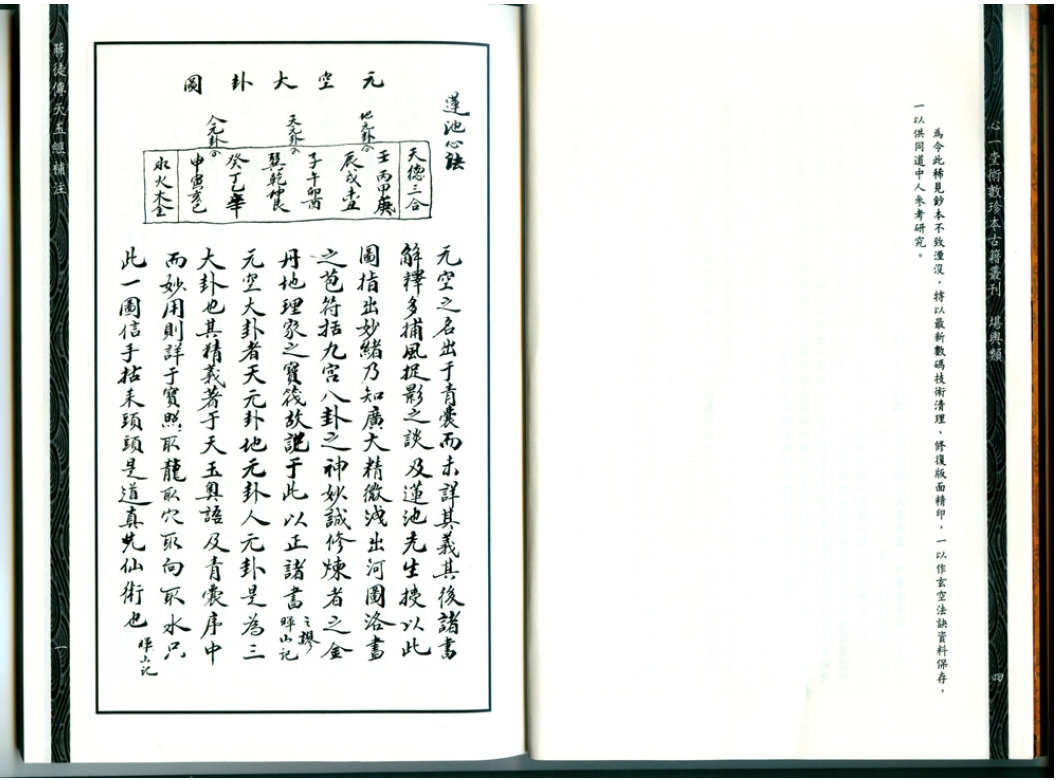 心一堂術數珍本古籍叢刊 堪輿類
為令此稀見鈔本不致湮沒，特以最新數碼技術清理、修復版面精印，一以作玄空法訣資料保存，
一以供同道中人參考研究。
四
蓮池心訣
元空大卦圖
地元卦
天元卦
人元卦
天德三合
壬丙甲庚
辰戌丑未
子午卯酉
巽乾坤艮
癸丁乙辛
申寅亥巳
水火木金
元空之名出于青囊而未詳其義其後諸書
解釋多捕風捉影之談及蓮池先生授以此
圖指出妙緒乃知廣大精微洩出河圖洛書
之苞符括九宮八卦之神妙誠修煉者之金
丹地理家之寶筏故說于此以正諸書之謬 暉山記
元空大卦者天元卦地元卦人元卦是為三
大卦也其精義著于天玉奧語及青囊序中
而妙用則詳于寶照取龍取穴取向取水只
此一圖信手拈來頭頭是道真先仙術也 暉山記
蔣徒傳天玉經補注
一